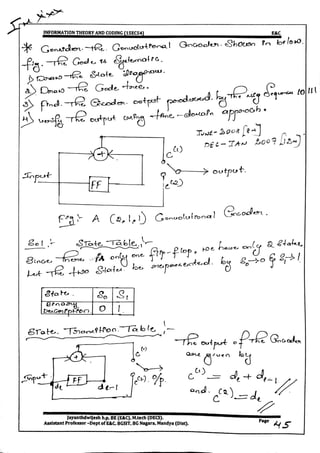 INFORMATION THEORY AND CODING (15EC54) E&C
* Consider the Convolutional Encoder Shown in below
fig. The Code is Systematic.
1) Draw the State diagram.
2) Draw the Code tree.
3) Find the Encoder output produced by the msg Sequence 10111
4) Verify the output using time-domain approach.
JUNE-2008 [8M]
DEC-JAN 2009 [12M]
+
Input FF
c(1)
c(2)
output.
Fig:- A (2,1,1) Convolutional Encoder.
Sol:- State Table:-
Since there is only one flip-flop, we have only 2 states,
Let the two states be represented by S0→0 & S1→1
State. S0 S1
Binary Description 0 1
State Transition Table:-
+
c(1)
Input FF
de de-1
c(2) o/p.
The output of the Encoder
are given by
c(1) = de + de-1
and. c(2) = de
Jayanthdwijesh h.p, BE (E&C), M.tech (DECS).
Assistant Professor -Dept of E&C, BGSIT, BG Nagara, Mandya (Dist).
Page 45